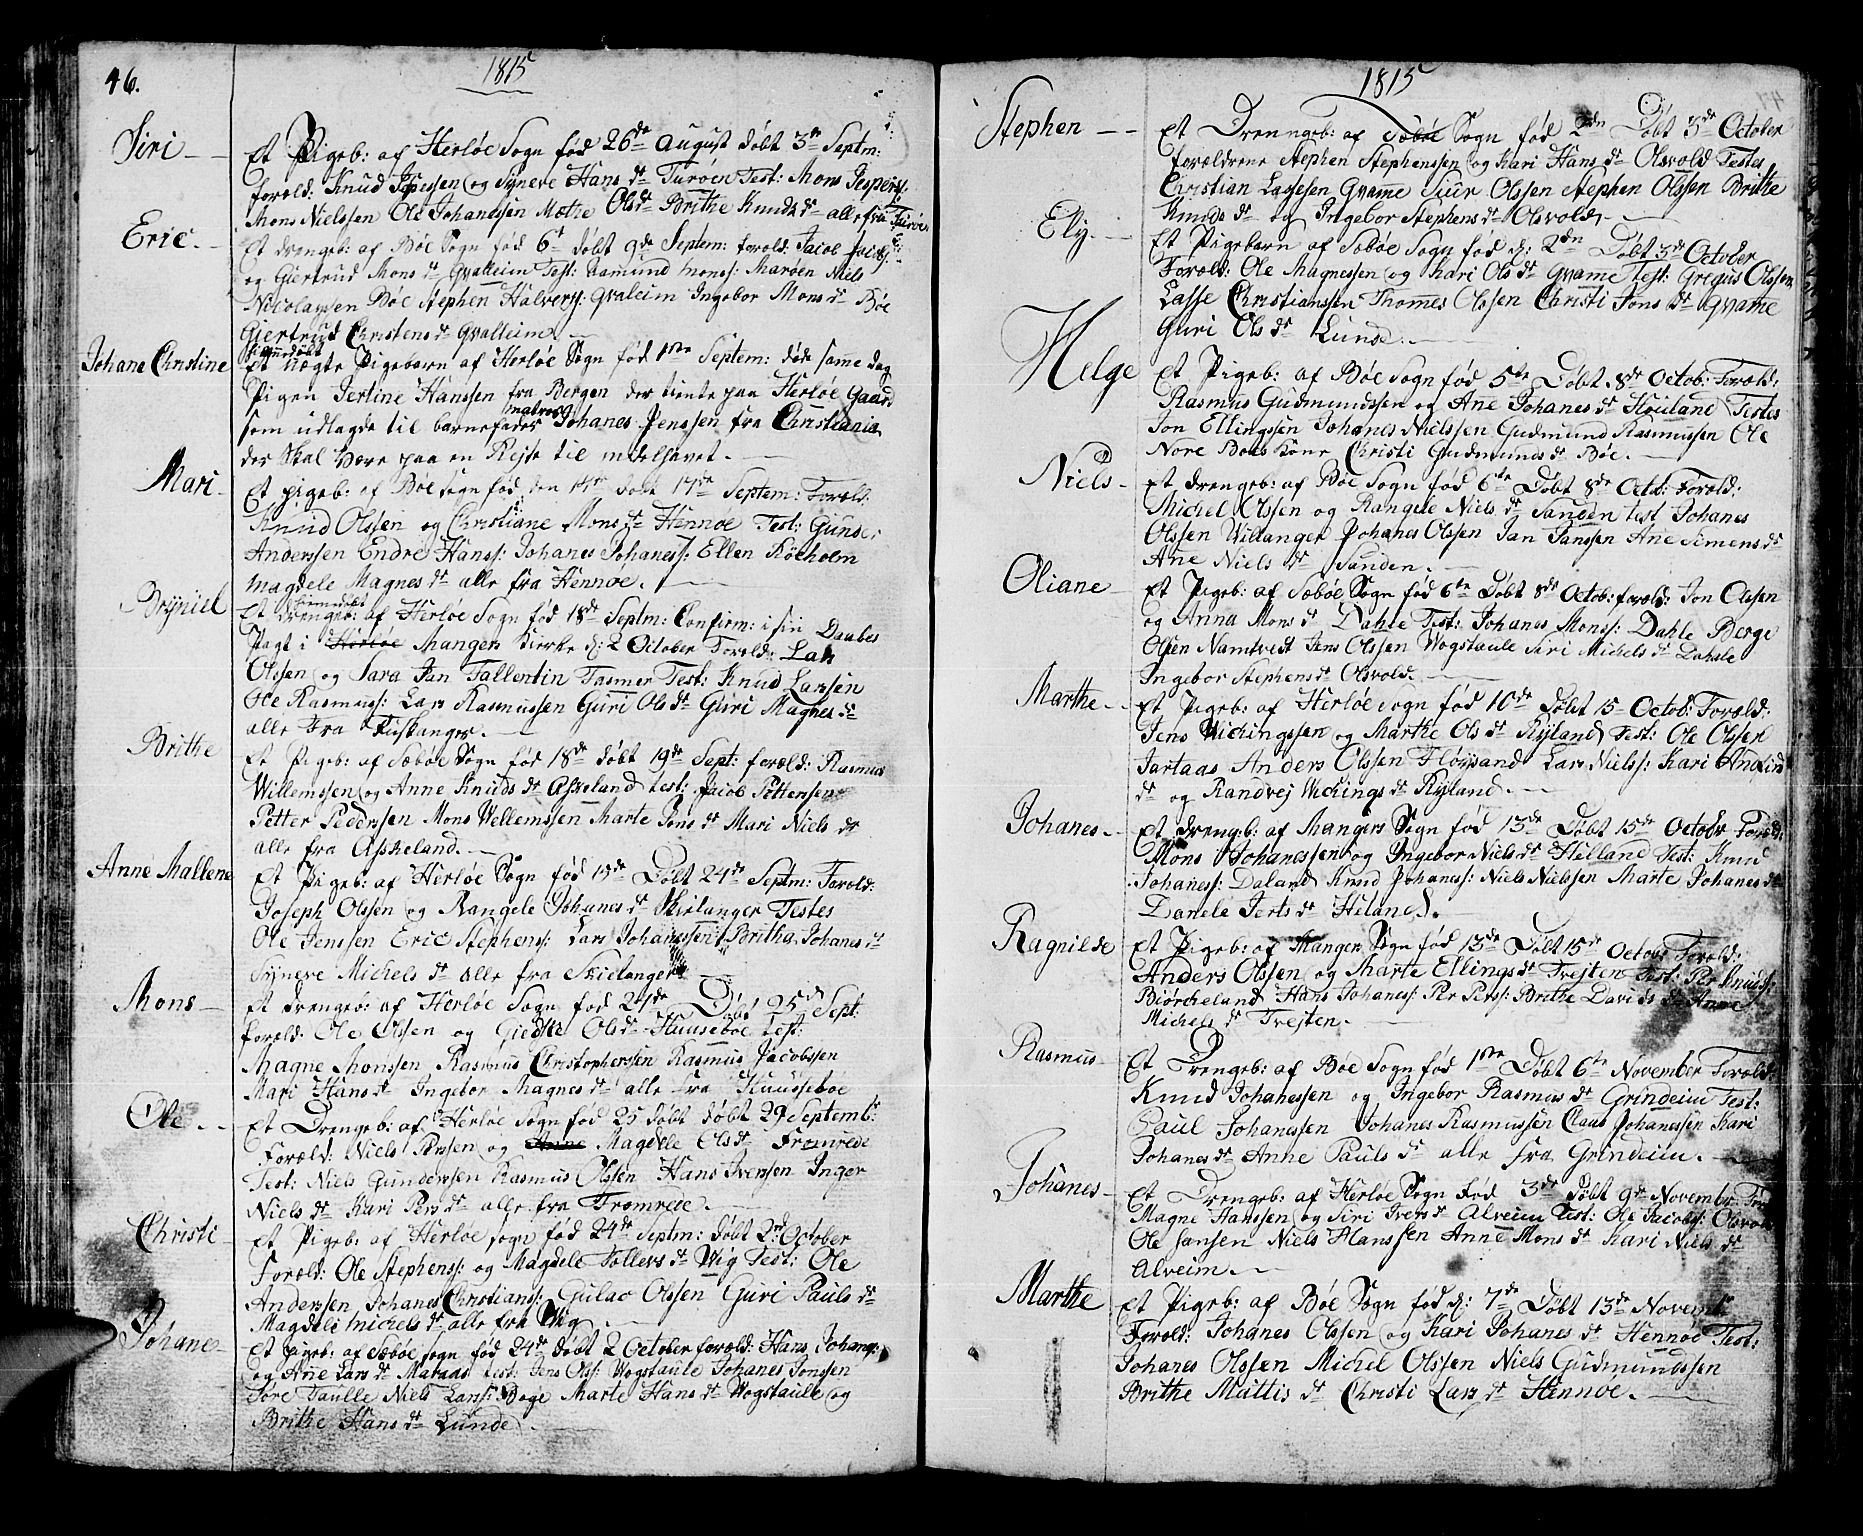 46.
1815
Siri - - Et Pigeb: af Herløe Sogn fød 26de August døbt 3de Septm:
foræld: Knud og Syneve Hans dr Turøen Test: Mons
Mons Nielssen Ole Johanessen Mæthe Ols dr Brithe Knuds dr alle fra Turøe
Eric. - Et drengeb: af Bøe Sogn fød 6t døbt 9de Septem: foræld: Jacob
og Giertrud Mons dr Qvalleim Test: Mons: Marøen Niels
Nicolayssen Bøe Stephen Halvors: Qvaleim Ingebor Mons dr Bøe
Giertrud Christens dr Qvalleim. -
Johane Christine hiemdøbt
Et uægte Pigebarn af Herløe Sogn fød 1ste Septem: døde same dag
Pigen Jertine Hanssen fra Bergen der tiente paa Herløe Gaard
som udlagde til barnefader matros Johanes Jenssen fra Christiania
der skal være paa en Rejse til midelhavet. -
Mari - Et pigeb: af Bøe Sogn fød den 14de døbt 17de Septem: Foræld:
Knud Olssen og Christiane Mons dr Hennøe Test: Gunder
Anderssen Endre Hanss: Johanes Johaness: Ellen Röeholm
Magdele Magnes dr alle fra Hennøe. -
Brÿniel hiemdøbt
Et drengeb: af Herløe Sogn fød 18de Septm: Confirm: i sin Daabes
Pagt i Herløe Manger Kirke d: 2 October Foræld: Lars
Olssen og Sara Jan Tallentin Tasmer Test: Knud Larssen
Ole Rasmuss: Lars Rasmussen Guri Ols dr Guri Magnes dr
alle Fra -
Brithe Et Pigeb: af Sæbøe Sogn fød 18de døbt 19de Sept: foræld: Rasmus
Willemssen og Anne Knuds dr Askeland test: Jacob Pettersen
Petter Pederssen Mons Wellemssen Marte Jons dr Mari Niels dr
alle fra Askeland. -
Anne Mallene Et Pigeb: af Herløe Sogn fød 15de Døbt 24de Septm: Foræld:
Joseph Olssen og Rangele Johanes dr Skielanger Testes
Ole Jenssen Eric Stephens: Lars Johanessen Britha Johanes dr
Syneve Michels dr alle fra Skielanger
Mons - Et drengeb: af Herløe Sogn fød 24de Døbt 25de Sept:
foræld: Ole Olssen og Ols dr Huusebøe test:
Magne Monssen Rasmus Christopherssen Rasmus Jacobssen
Mari Hans dr Ingebor Magnes dr alle fra Huussebøe
Ole - - Et Drengeb: af Herløe Sogn fød 25 døbt døbt 29 Septemb:
Foræld: Niels Penssen og Anne Magdele Ols dr Fromrede
Test: Niels Gunderssen Rasmus Olssen Hans Iverssen Inger
Niels dr Kari Pers dr alle fra Fromrede. -
Christi - Et Pigeb: af Herløe sogn fød 24de Septm: døbt 2de October
Foræld: Ole Stephenss: og Magdele Tollevs dr Wiig Test: Ole
Anderssen Johanes Christianss: Gulac Olssen Guri Pauls dr
Magdeli michels dr alle fra Wiig -
Johane - Et pigeb: af Sæbøe sogn fød 24de døbt 2 October foræld: Hans Johans:
og Ane Lars dr Mataas test: Jens Olss: Wogstaule Johanes Jonssen
Tore Taulle Niels Larss: Boge Marte Hans dr Wogstaule og
Brithe Hans dr Lunde. -
1815
Stephen - - Et Drengeb: af Sæbøe Sogn fød 2den Døbt 3de October
forældrene Stephen Stephenssen og Kari Hans dr Olsvold Testes
Christian Lassesen Qvame Siur Olssen Stephen Olssen Brithe
Knuds dr og Ingebor Stephens dr Olsvold. -
Ely - - Et Pigebarn af Sæbøe Sogn fød d: 2den Døbt 3de October
Foræld: Ole Magnessen og Kari Ols dr Qvame Test: Gregus Olssen
Lasse Christianssen Thomes Olssen Christi Jons dr Qvame
Guri Ols dr Lunde. -
Helge Et Pigeb: af Bøe Sogn fød 5te Døbt 8de Octob: Foræld:
Rasmus Gudmundssen og Ane Johanes dr Houland Testes
Jon Ellingssen Johanes Nielssen Gudmund Rasmussen Ole
Nore Bøes kone Christi Gudmunds dr Bøe. -
Niels - Et drengeb: af Bøe Sogn fød 6te Døbt 8de Octob: Foræld:
Michel Olssen og Rangele Niels dr Sanden test Johanes
Olssen Willanger Johanes Olssen Jan Janssen Ane Simens dr
Ane Niels dr Sanden. -
Oliane - Et Pigeb: af Sæbøe Sogn fød 6te Døbt 8de Octob: foræld: Jon Olssen
og Anna Mons dr Dahle Test: Johanes Monss: Dahle Berge
Olssen Namtvedt Jens Olssen Wogstaule Siri Michels dr Dahle
Ingebor Stephens dr Olsvold. -
Marthe - - Et Pigeb: af Herløe sogn fød 10de døbt 15 Octob: Foræld:
Jens Wichingssen og Marthe Ols dr Ryland Test: Ole Olssen
Jartaas Anders Olssen Fløysand Lars Nielss: Kari
dr og Randvej Wichings dr Ryland. -
Johanes - Et drengeb: af Mangers Sogn fød 13de Døbt 15de October Foræld:
Mons Johanessen og Ingebor Niels dr Helland Test: Knud
Johaness: Daland Knud Johaness: Niels Nielssen Marte Johanes dr
Danele Jerts dr Heland. -
Ragnilde Et Pigeb: af Manger Sogn fød 13de Døbt 15de Octobr Foræld:
Anders Olssen og Marte Ellings dr Trejten Test: Per Knuds:
Biørcheland Hans Johaness: Per Perss: Brithe Davids dr Anne
Michels dr Trejten. -
Rasmus - Et Drengeb: af Bøe Sogn fød 1ste Døbt 6te November Foræld:
Knud Johanessen og Ingebor Rasmus dr Grindeim Test:
Paul Johanessen Johanes Rasmussen Claus Johanessen Kari
Johanes dr Anne Pauls dr alle fra Grindeim. -
Johanes - Et Drengeb: af Herløe Sogn Fød 3de Døbt 9de Novembr
Magne Hanssen og Siri Ivers dr Alveim Test: Ole Jacobss: Olsvold
Ole Jansen Niels Hanssen Anne Mons dr Kari Niels dr
Alveim. -
Marthe Et Pigeb: af Bøe Sogn fød d: 7de Døbt 13de Novemb:
Foræld: Johanes Olssen og Kari Johanes dr Hennøe Test:
Johanes Olssen Michel Olssen Niels Gudmundssen
Brithe Mattis dr Christi Lars dr Hennøe. -